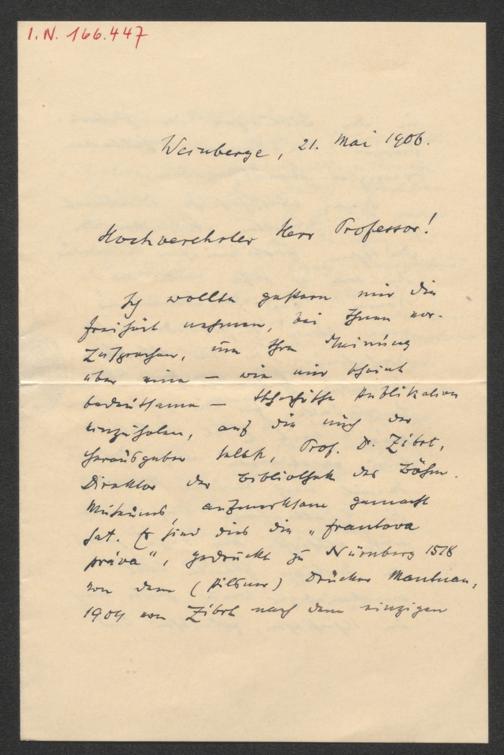 I. N. 166.447
Weinberge, 21. Mai 1906.
Hochverehrter Herr Professor!
Ich wollte gestern mir die
Freiheit nehmen, bei Ihnen vor-
zusprechen, um Ihre Meinung
über eine – wie mir scheint
bedeutsame – tschechische Publikation
einzuholen, auf die mich der
Herausgeber selbst, Prof. D. Zíbrt,
Direktor der Bibliothek des Böhm.
Museums aufmerksam gemacht
hat. Es sind dies die „Frantova
práva", gedruckt zu Nürnberg 1518
von dem (Pilsner) Drucker Mantuan,
1904 von Zíbrt nach dem einzigen